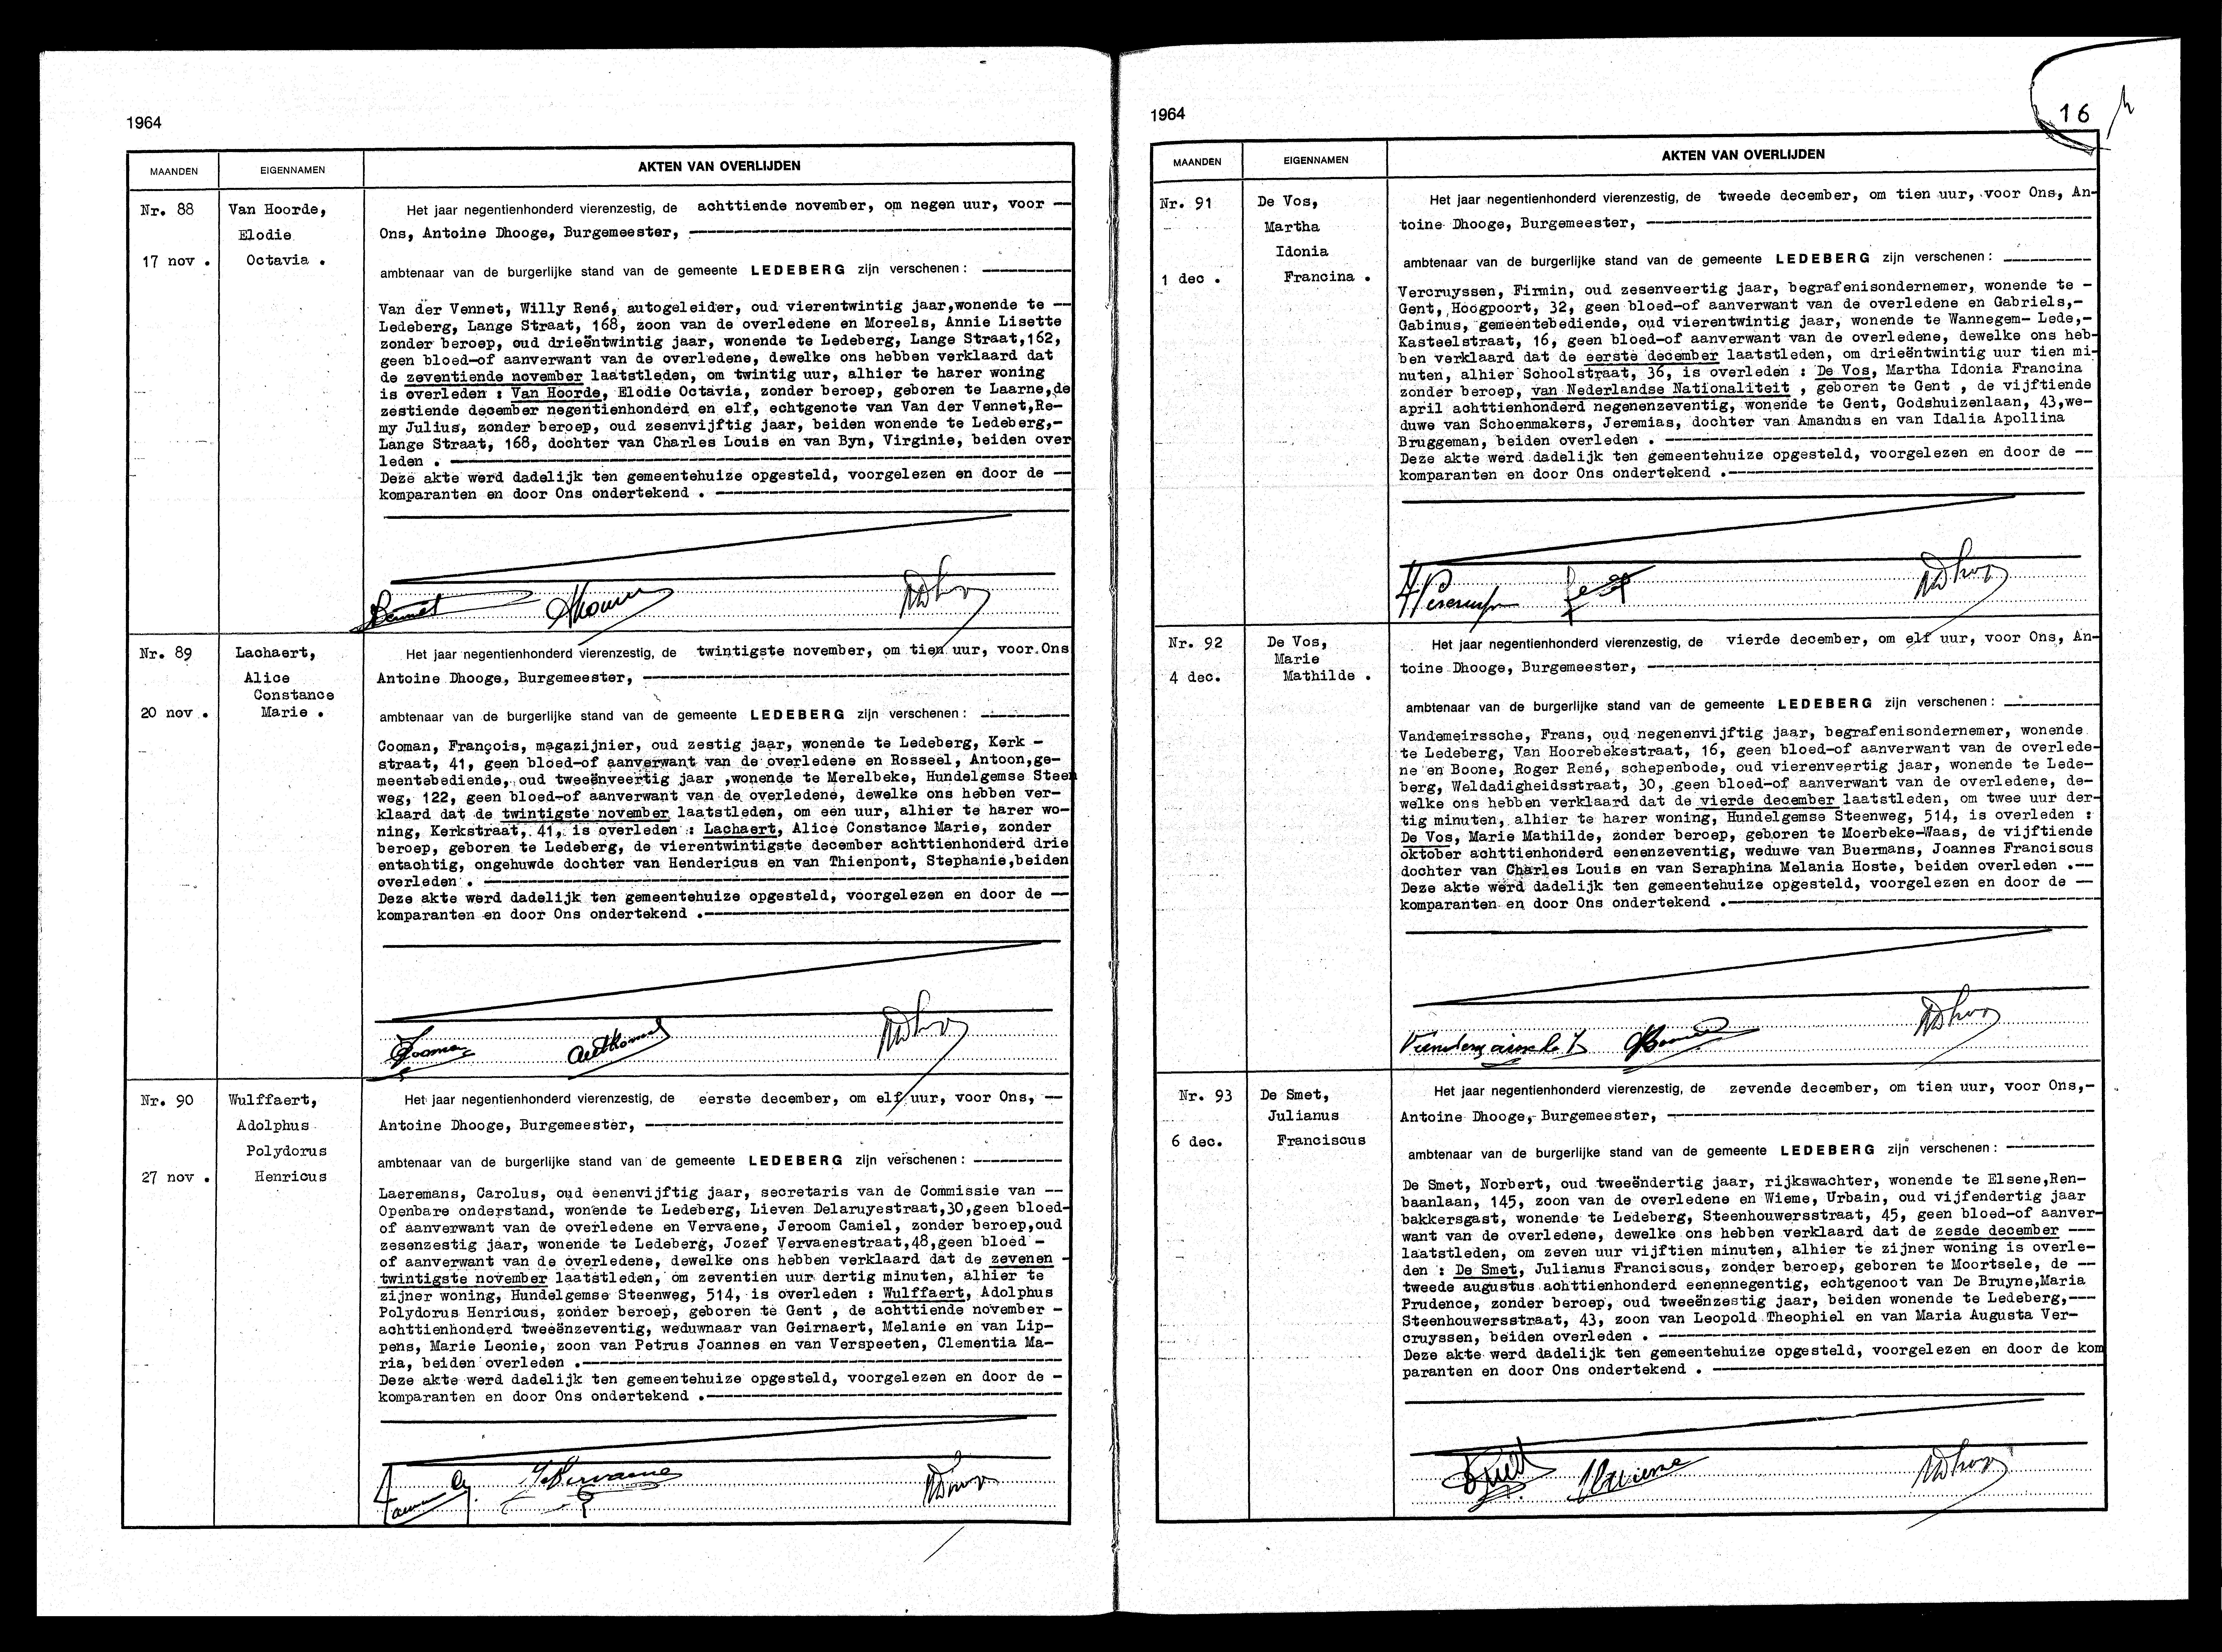 1964
MAANDEN EIGENNAMEN AKTEN VAN OVERLIJDEN
Nr. 88
17 nov .
Van Hoorde,
Elodie
Octavia .
Het jaar negentienhonderd vierenzestig, de achttiende november, om negen uur, voor —
Ons, Antoine Dhooge, Burgemeester, —
ambtenaar van de burgerlijke stand van de gemeente LEDEBERG zijn verschenen : —
Van der Vennet, Willy René, autogeleider, oud vierentwintig jaar,wonende te —
Ledeberg, Lange Straat, 168, zoon van de overledene en Moreels, Annie Lisette
zonder beroep, oud drieëntwintig jaar, wonende te Ledeberg, Lange Straat,162,
geen bloed-of aanverwant van de overledene, dewelke ons hebben verklaard dat
de zeventiende november laatstleden, om twintig uur, alhier te harer woning
is overleden : Van Hoorde, Elodie Octavia, zonder beroep, geboren te Laarne,de
zestiende december negentienhonderd en elf, echtgenote van Van der Vennet,Re-
my Julius, zonder beroep, oud zesenvijftig jaar, beiden wonende te Ledeberg,-
Lange Straat, 168, dochter van Charles Louis en van Byn, Virginie, beiden over
leden . —
Deze akte werd dadelijk ten gemeentehuize opgesteld, voorgelezen en door de —
komparanten en door Ons ondertekend . —
Nr. 89
20 nov .
Lachaert,
Alice
Constance
Marie .
Het jaar negentienhonderd vierenzestig, de twintigste november, om tien uur, voor Ons
Antoine Dhooge, Burgemeester, —
ambtenaar van de burgerlijke stand van de gemeente LEDEBERG zijn verschenen : —
Cooman, François, magazijnier, oud zestig jaar, wonende te Ledeberg, Kerk -
straat, 41, geen bloed-of aanverwant van de overledene en Rosseel, Antoon,ge-
meentebediende, oud tweeënveertig jaar ,wonende te Merelbeke, Hundelgemse Steen
weg, 122, geen bloed-of aanverwant van de overledene, dewelke ons hebben ver-
klaard dat de twintigste november laatstleden, om een uur, alhier te harer wo-
ning, Kerkstraat, 41, is overleden : Lachaert, Alice Constance Marie, zonder
beroep, geboren te Ledeberg, de vierentwintigste december achttienhonderd drie
entachtig, ongehuwde dochter van Hendericus en van Thienpont, Stephanie,beiden
overleden . —
Deze akte werd dadelijk ten gemeentehuize opgesteld, voorgelezen en door de —
komparanten en door Ons ondertekend .—
Nr. 90
27 nov .
Wulffaert,
Adolphus
Polydorus
Henricus
Het jaar negentienhonderd vierenzestig, de eerste december, om elf uur, voor Ons, —
Antoine Dhooge, Burgemeester, —
ambtenaar van de burgerlijke stand van de gemeente LEDEBERG zijn verschenen : —
Laeremans, Carolus, oud eenenvijftig jaar, secretaris van de Commissie van --
Openbare onderstand, wonende te Ledeberg, Lieven Delaruyestraat,30,geen bloed-
of aanverwant van de overledene en Vervaene, Jeroom Camiel, zonder beroep,oud
zesenzestig jaar, wonende te Ledeberg, Jozef Vervaenestraat,48,geen bloed -
of aanverwant van de overledene, dewelke ons hebben verklaard dat de zevenen -
twintigste november laatstleden, om zeventien uur dertig minuten, alhier te
zijner woning, Hundelgemse Steenweg, 514, is overleden : Wulffaert, Adolphus
Polydorus Henricus, zonder beroep, geboren te Gent , de achttiende november -
achttienhonderd tweeënzeventig, weduwnaar van Geirnaert, Melanie en van Lip-
pens, Marie Leonie, zoon van Petrus Joannes en van Verspeeten, Clementia Ma-
ria, beiden overleden .—
Deze akte werd dadelijk ten gemeentehuize opgesteld, voorgelezen en door de -
komparanten en door Ons ondertekend .—
1964
16
MAANDEN EIGENNAMEN AKTEN VAN OVERLIJDEN
Nr. 91
1 dec .
De Vos,
Martha
Idonia
Francina .
Het jaar negentienhonderd vierenzestig, de tweede december, om tien uur, voor Ons, An-
toine Dhooge, Burgemeester, —
ambtenaar van de burgerlijke stand van de gemeente LEDEBERG zijn verschenen : —
Vercruyssen, Firmin, oud zesenveertig jaar, begrafenisondernemer, wonende te -
Gent, Hoogpoort, 32, geen bloed-of aanverwant van de overledene en Gabriels,-
Gabinus, gemeentebediende, oud vierentwintig jaar, wonende te Wannegem- Lede,-
Kasteelstraat, 16, geen bloed-of aanverwant van de overledene, dewelke ons heb-
ben verklaard dat de eerste december laatstleden, om drieëntwintig uur tien mi-
nuten, alhier Schoolstraat, 36, is overleden : De Vos, Martha Idonia Francina
zonder beroep, van Nederlandse Nationaliteit , geboren te Gent , de vijftiende
april achttienhonderd negenenzeventig, wonende te Gent, Godshuizenlaan, 43,we-
duwe van Schoenmakers, Jeremias, dochter van Amandus en van Idalia Apollina
Bruggeman, beiden overleden . —
Deze akte werd dadelijk ten gemeentehuize opgesteld, voorgelezen en door de --
komparanten en door Ons ondertekend .—
Nr. 92
4 dec.
De Vos,
Marie
Mathilde .
Het jaar negentienhonderd vierenzestig, de vierde december, om elf uur, voor Ons, An-
toine Dhooge, Burgemeester, —
ambtenaar van de burgerlijke stand van de gemeente LEDEBERG zijn verschenen : —
Vandemeirssche, Frans, oud negenenvijftig jaar, begrafenisondernemer, wonende
te Ledeberg, Van Hoorebekestraat, 16, geen bloed-of aanverwant van de overlede-
ne en Boone, Roger René, schepenbode, oud vierenveertig jaar, wonende te Lede-
berg, Weldadigheidsstraat, 30, geen bloed-of aanverwant van de overledene, de-
welke ons hebben verklaard dat de vierde december laatstleden, om twee uur der-
tig minuten, alhier te harer woning, Hundelgemse Steenweg, 514, is overleden :
De Vos, Marie Mathilde, zonder beroep, geboren te Moerbeke-Waas, de vijftiende
oktober achttienhonderd eenenzeventig, weduwe van Buermans, Joannes Franciscus
dochter van Charles Louis en van Seraphina Melania Hoste, beiden overleden .--
Deze akte werd dadelijk ten gemeentehuize opgesteld, voorgelezen en door de —
komparanten en door Ons ondertekend .—
Nr. 93
6 dec.
De Smet,
Julianus
Franciscus
Het jaar negentienhonderd vierenzestig, de zevende december, om tien uur, voor Ons,-
Antoine Dhooge, Burgemeester, —
ambtenaar van de burgerlijke stand van de gemeente LEDEBERG zijn verschenen : —
De Smet, Norbert, oud tweeëndertig jaar, rijkswachter, wonende te Elsene,Ren-
baanlaan, 145, zoon van de overledene en Wieme, Urbain, oud vijfendertig jaar
bakkersgast, wonende te Ledeberg, Steenhouwersstraat, 45, geen bloed-of aanver-
want van de overledene, dewelke ons hebben verklaard dat de zesde december ---
laatstleden, om zeven uur vijftien minuten, alhier te zijner woning is overle-
den : De Smet, Julianus Franciscus, zonder beroep, geboren te Moortsele, de --
tweede augustus achttienhonderd eenennegentig, echtgenoot van De Bruyne,Maria
Prudence, zonder beroep, oud tweeënzestig jaar, beiden wonende te Ledeberg,---
Steenhouwersstraat, 43, zoon van Leopold Theophiel en van Maria Augusta Ver-
cruyssen, beiden overleden . —
Deze akte werd dadelijk ten gemeentehuize opgesteld, voorgelezen en door de kom
paranten en door Ons ondertekend . —